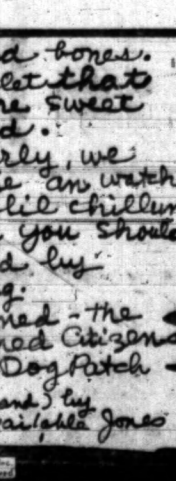 d bones.
let that
re sweet
d.
rly, we
e an watch
lil chillun
you should
d by
g.
ned - the
ned Citizens
DogPatch
and) by
vailable Jones